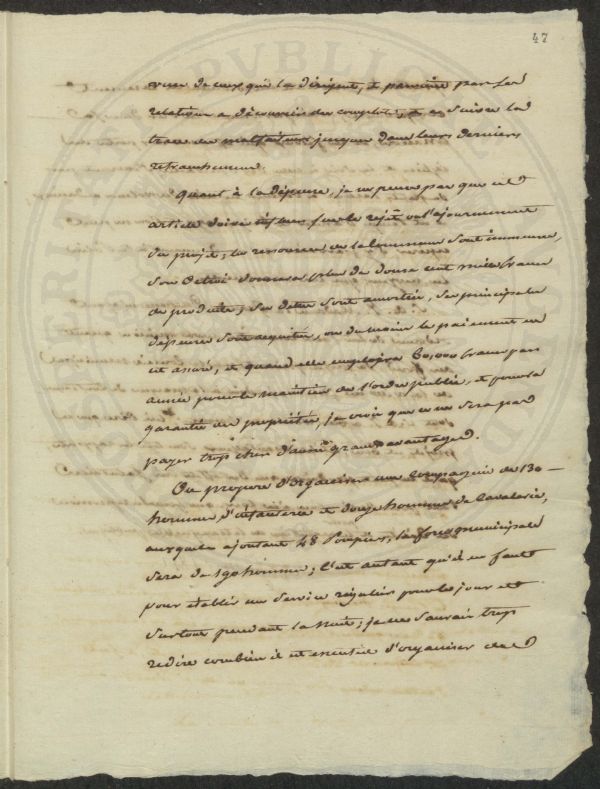 47
vues de ceux qui la dirigent, et parvenir par ses
relations a découvrir des complots, et a suivre la
trace des malfaiteurs jusques dans leurs derniers
retranchemens.
Quant à la dépense, je ne pense pas que cet
article doive influer sur le rejet ou l'ajournement
du projet; les ressources de la Commune sont immenses,
son octroi donnera plus de douze cent mille francs
de produits, ses dettes sont amorties, ses principales
dépenses sont acquittées, ou du moins le paiement en
est assuré, et quand elle emploira 60,000 francs par
année pour le maintien de l'ordre public, et pour la
garantie des propriétés, je crois que ce ne sera pas
payer trop cher d'aussi grands avantages.
On propose d'organiser une Compagnie de 130
hommes d'infanterie et douze hommes de Cavalerie,
auxquels ajoutant 48 Pompiers, la force municipale
sera de 190 hommes; C'est autant qu'il en faut
pour etablir un service régulier pour le jour et
surtout pendant la nuit; je ne saurais trop
redire combien il est essentiel d'organiser